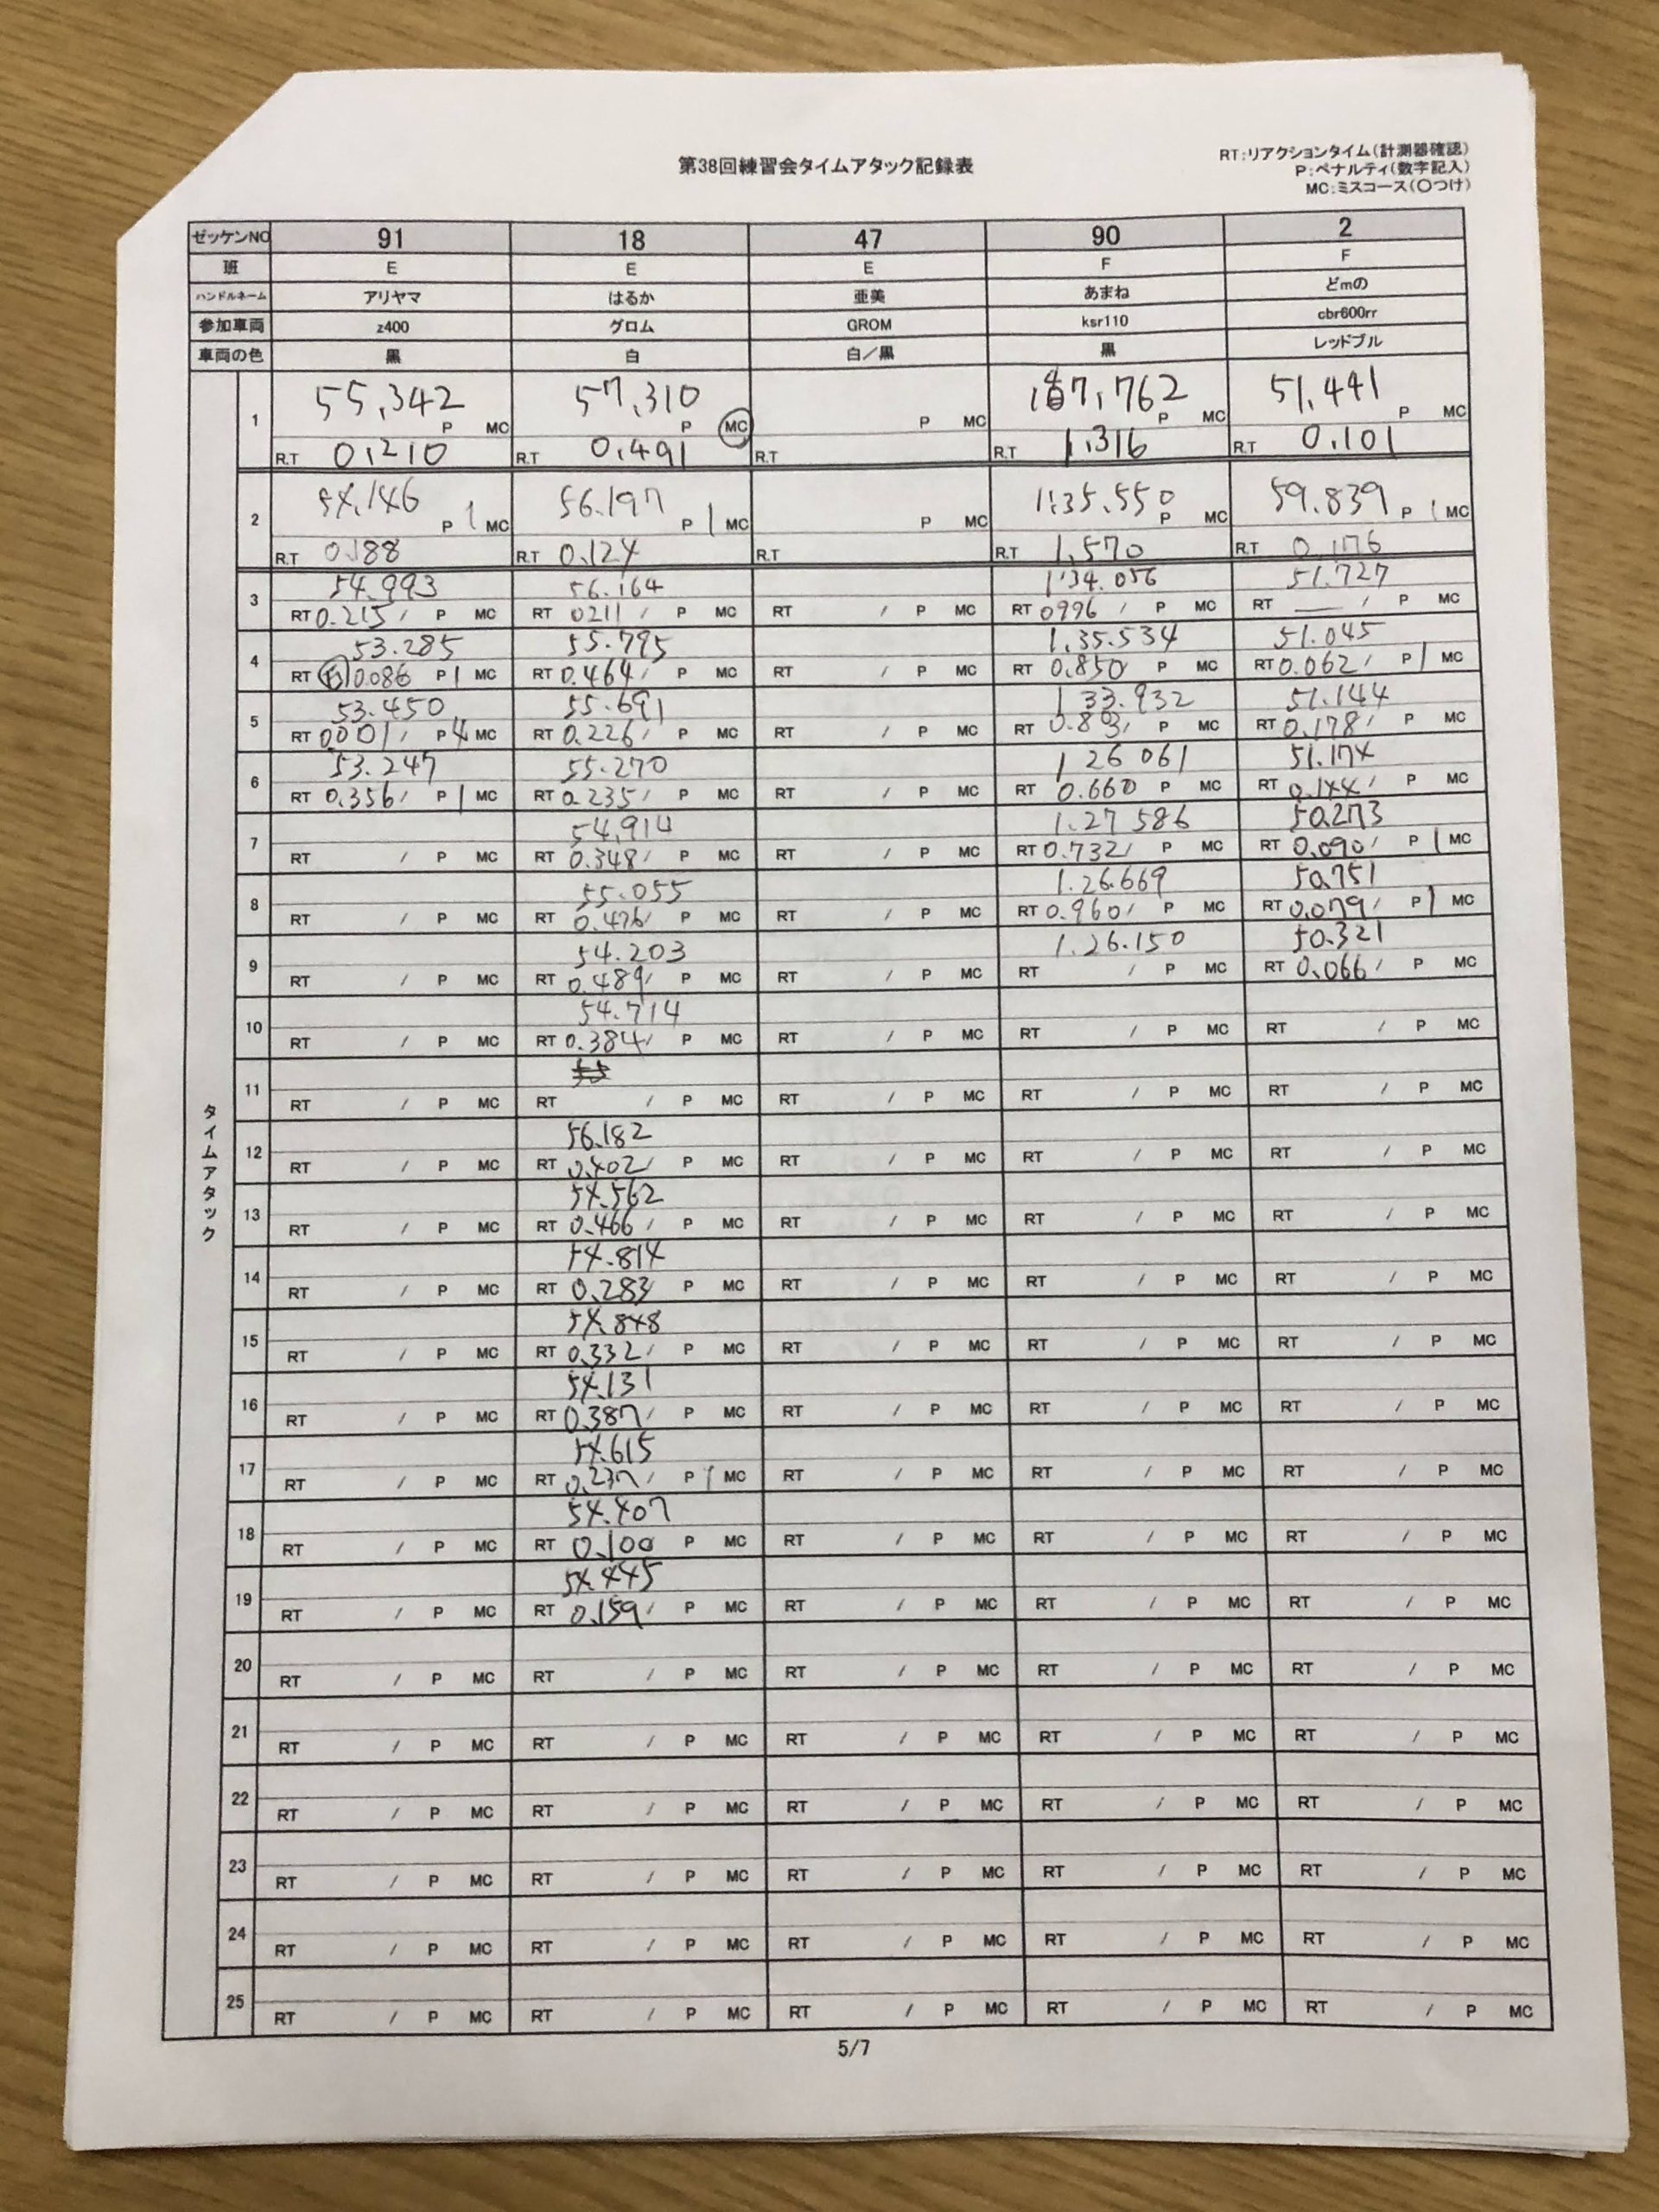 第38回練習会タイムアタック記録表
RT:リアクションタイム(計測器確認)
P:ペナルティ(数字記入)
MC:ミスコース(〇つけ)
ゼッケンNO 91 18 47 90 2
班 E E E F F
ハンドルネーム アリヤマ はるか 亜美 あまね どmの
参加車両 z400 グロム GROM ksr110 cbr600rr
車両の色 黒 白 白/黒 黒 レッドブル
タイムアタック
55,342 57,310 51,441
1 P MC P MC P MC 7,762 P MC P MC
R.T 0,210 R.T 0,491 R.T R.T 1,316 R.T 0,101
54.146 56.197 1:35.550 59.839
2 P 1 MC P 1 MC P MC P MC P 1 MC
R.T 0.188 R.T 0.124 R.T R.T 1,570 R.T 0.176
54.993 56.164 1'34.056 51.727
3 RT 0.215 / P MC RT 0211 / P MC RT / P MC RT 0996 / P MC RT — / P MC
53.285 55.795 1,35.534 51.045
4 RT 0.086 P 1 MC RT 0.464 / P MC RT / P MC RT 0.850 / P MC RT 0.062 / P 1 MC
53.450 55.691 1 33.932 51.144
5 RT 0.001 / P 4 MC RT 0.226 / P MC RT / P MC RT / P MC RT 0.178 / P MC
53.247 55.270 1 26 061 51.174
6 RT 0.356 / P 1 MC RT 0.235 / P MC RT / P MC RT 0.660 P MC RT 0.144 / P MC
54,914 1.27 586 50.273
7 RT / P MC RT 0.348 / P MC RT / P MC RT 0.732 / P MC RT 0.090 / P 1 MC
55.055 1.26.669 50.751
8 RT / P MC RT 0.476 / P MC RT / P MC RT 0.960 / P MC RT 0.079 / P 1 MC
54.203 1.26.150 50.321
9 RT / P MC RT 0.489 / P MC RT / P MC RT / P MC RT 0.066 / P MC
54.714
10 RT / P MC RT 0.384 / P MC RT / P MC RT / P MC RT / P MC
11 RT / P MC RT / P MC RT / P MC RT / P MC RT / P MC
56.182
12 RT / P MC RT 0.402 / P MC RT / P MC RT / P MC RT / P MC
54.562
13 RT / P MC RT 0.466 / P MC RT / P MC RT / P MC RT / P MC
54.814
14 RT / P MC RT 0.283 / P MC RT / P MC RT / P MC RT / P MC
54.848
15 RT / P MC RT 0.332 / P MC RT / P MC RT / P MC RT / P MC
54.131
16 RT / P MC RT 0.387 / P MC RT / P MC RT / P MC RT / P MC
54.615
17 RT / P MC RT 0.237 / P 1 MC RT / P MC RT / P MC RT / P MC
54.407
18 RT / P MC RT 0.100 P MC RT / P MC RT / P MC RT / P MC
54.445
19 RT / P MC RT 0.159 / P MC RT / P MC RT / P MC RT / P MC
20 RT / P MC RT / P MC RT / P MC RT / P MC RT / P MC
21 RT / P MC RT / P MC RT / P MC RT / P MC RT / P MC
22 RT / P MC RT / P MC RT / P MC RT / P MC RT / P MC
23 RT / P MC RT / P MC RT / P MC RT / P MC RT / P MC
24 RT / P MC RT / P MC RT / P MC RT / P MC RT / P MC
25 RT / P MC RT / P MC RT / P MC RT / P MC RT / P MC
5/7